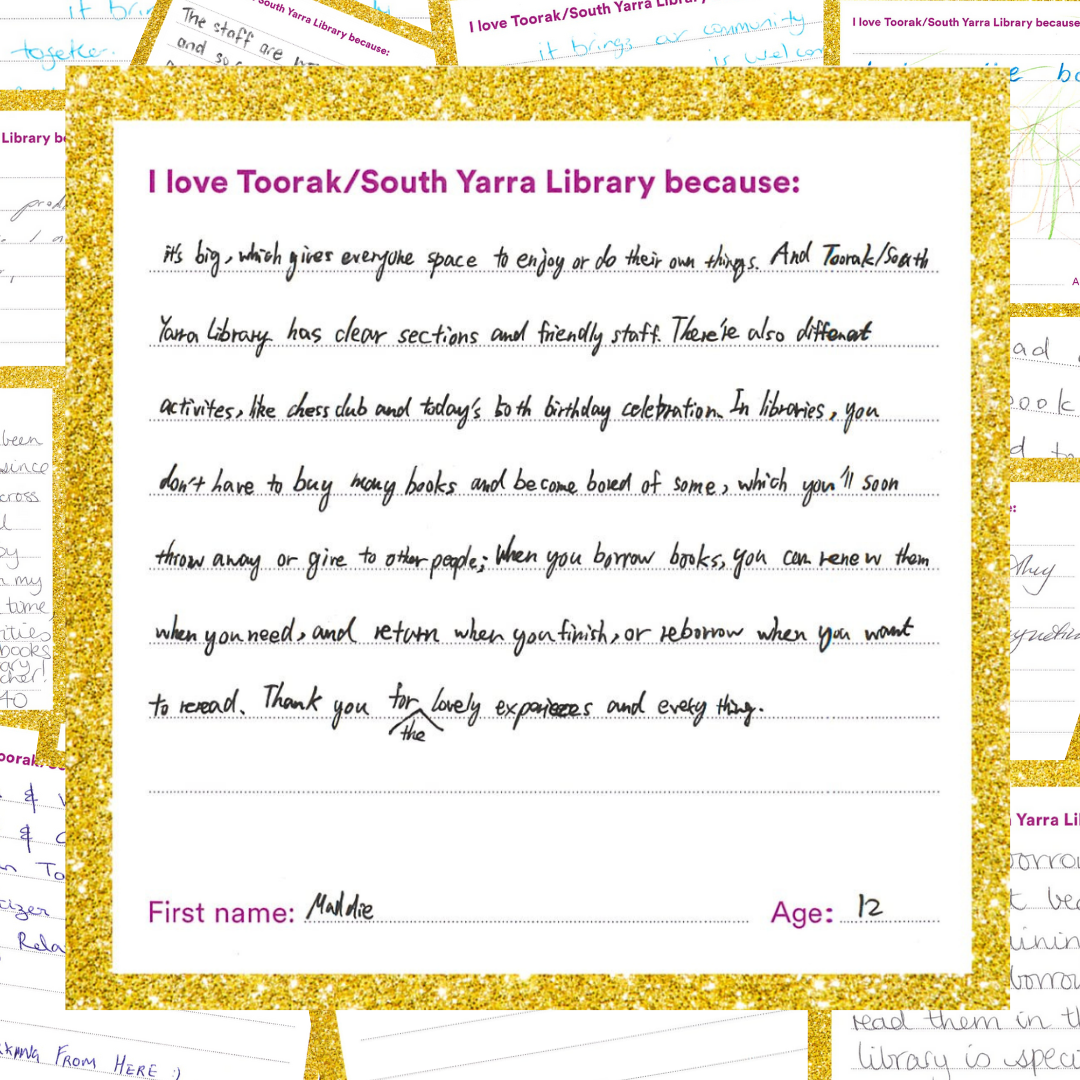 it brin
together.
The staff are
and so
South Yarra Library because:
I love Toorak/South Yarra Library
it brings our community
is welcom
I love Toorak/South Yarra Library because
Library be
I love Toorak/South Yarra Library because:
it's big, which gives everyone space to enjoy or do their own things. And Toorak/South
Yarra Library has clear sections and friendly staff. There're also different
activites, like chess club and today's 50th birthday celebration. In libraries, you
don't have to buy many books and become bored of some, which you'll soon
throw away or give to other people; when you borrow books, you can renew them
when you need, and return when you finish, or reborrow when you want
to reread. Thank you for the lovely experiences and every thing.
First name: Maddie
Age: 12
been
since
cross
my
time,
books
40
ad
book
d to
They
& 
& C
Rela
FROM HERE :)
Yarra Li
read them in th
library is speci